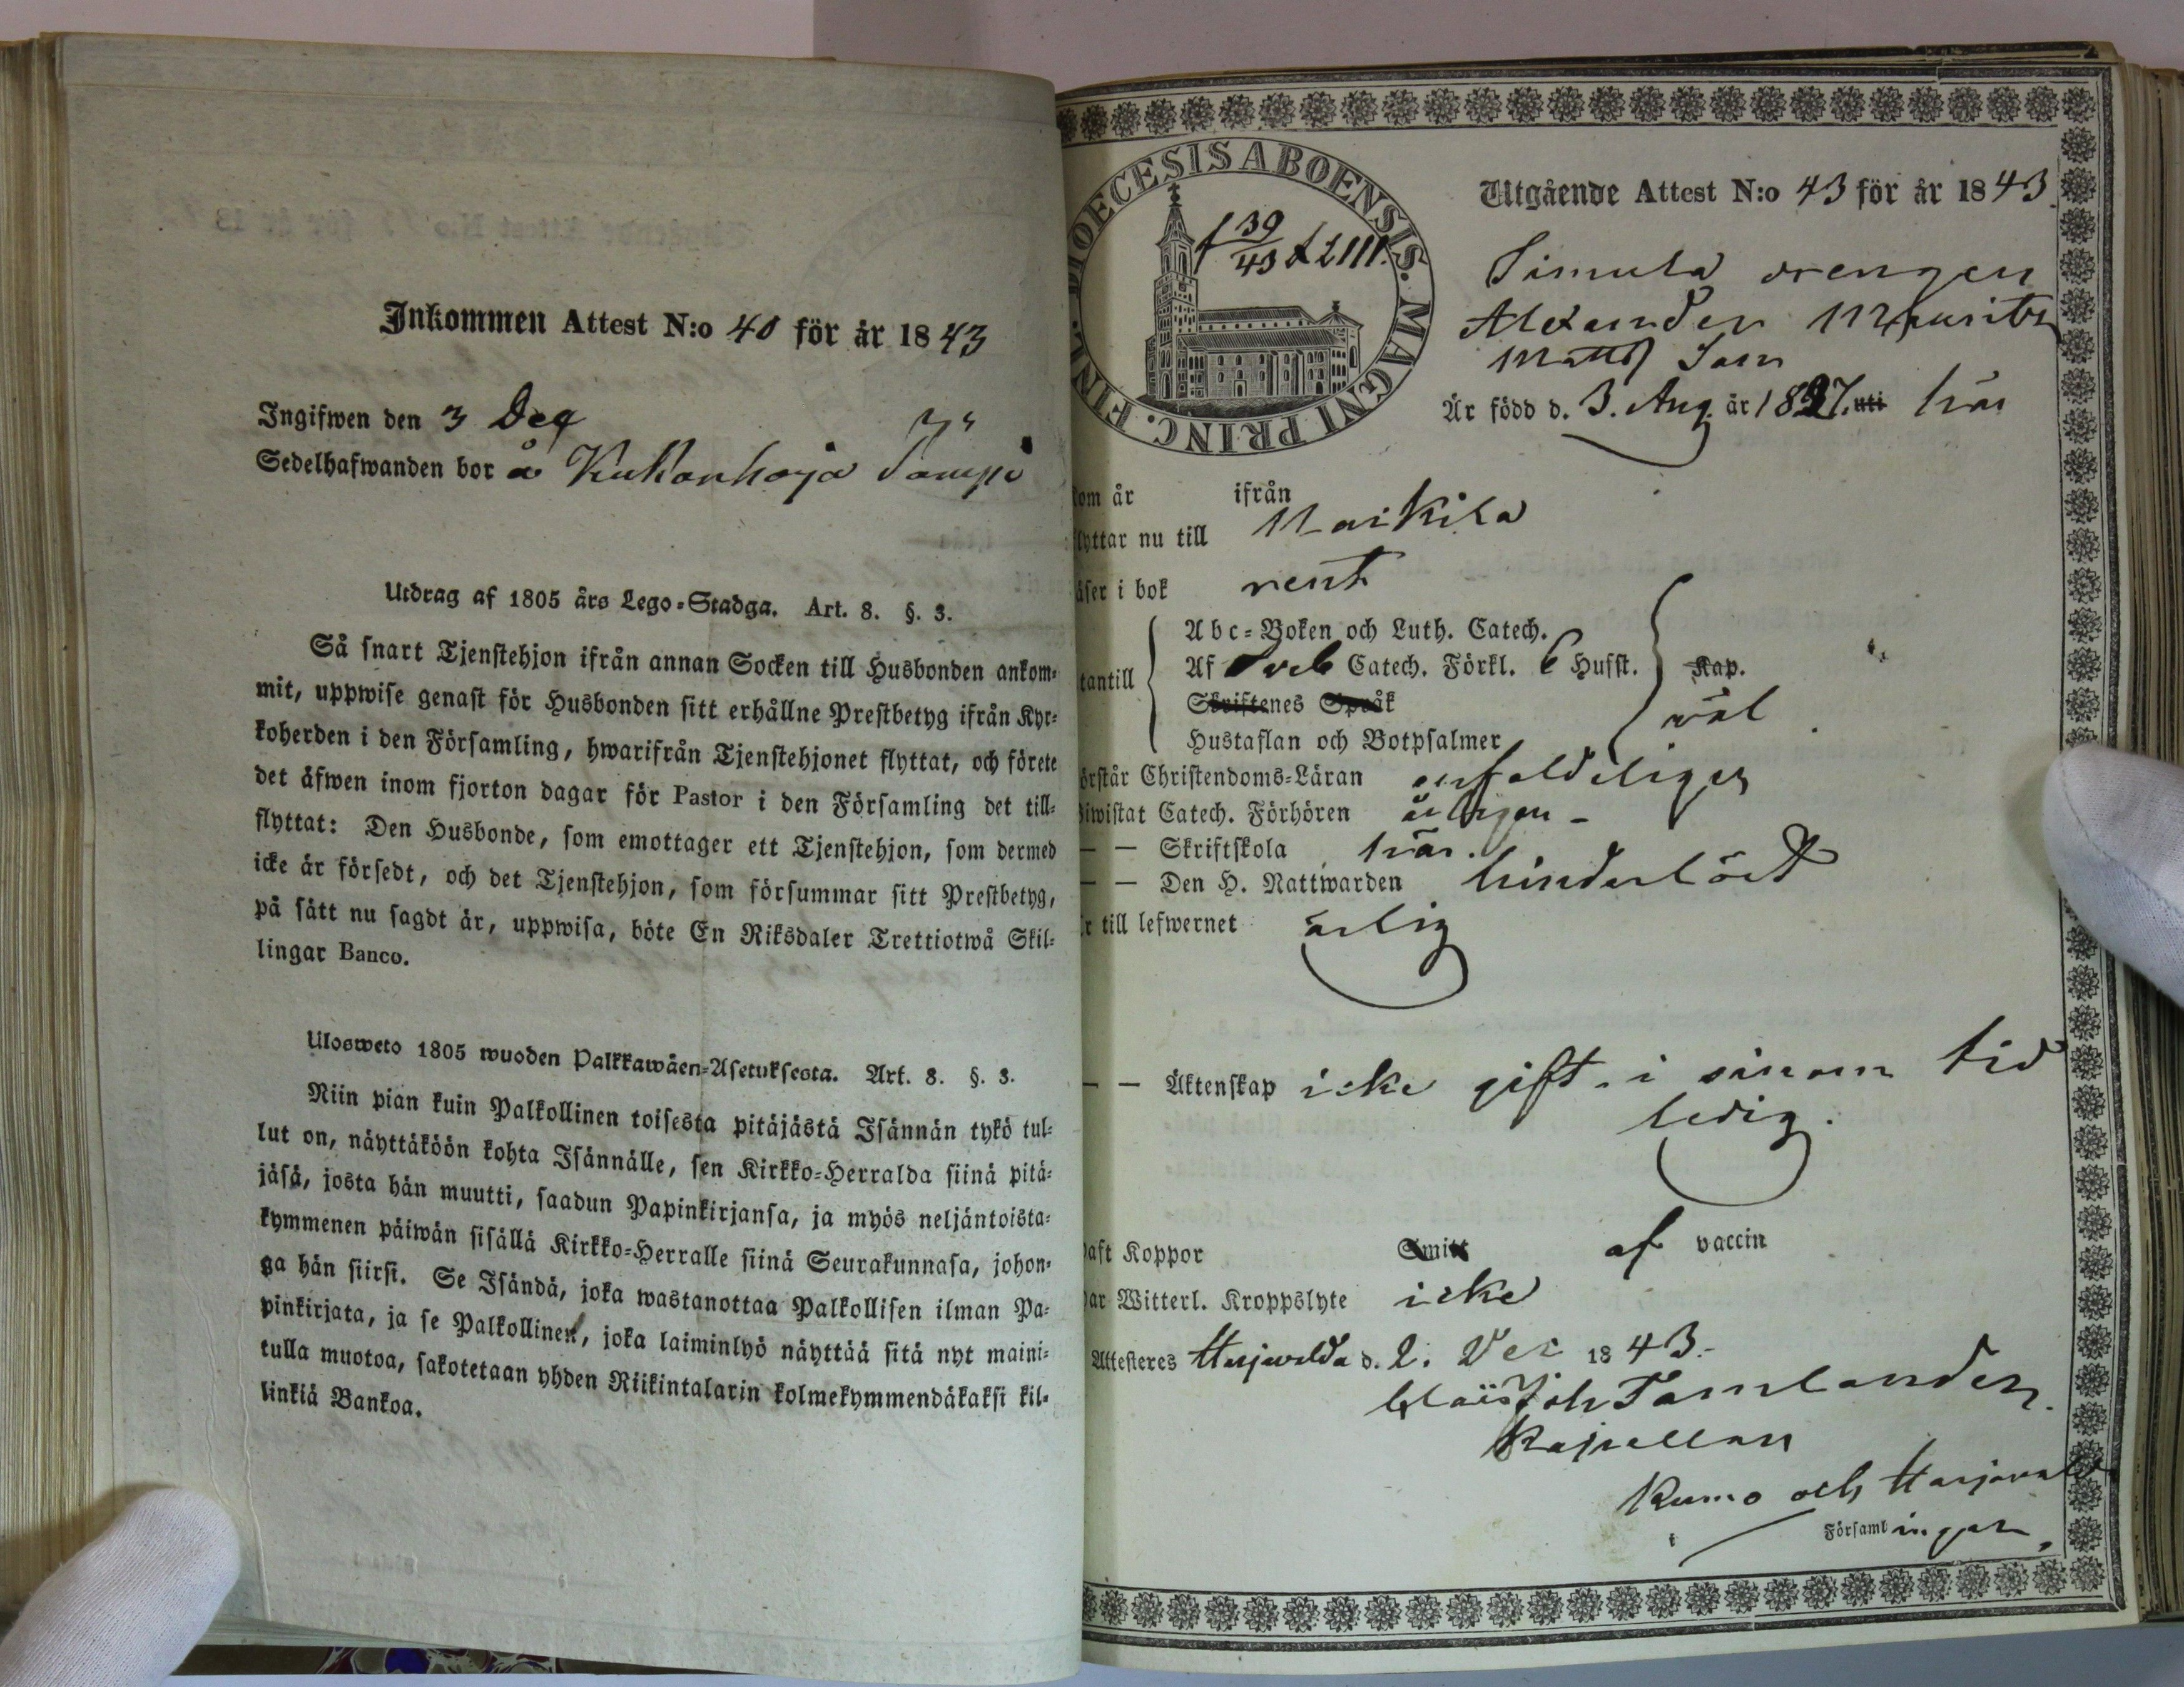 Inkommen Attest N:o 40 för år 1843
Ingifwen den 3 Dec
Sedelhafwanden bor å Kukonharja
Utdrag af 1805 års Lego-Stadga. Art. 8. §. 3.
Så snart Tjenstehjon ifrån annan Socken till Husbonden ankom-
mit, uppwise genast för Husbonden sitt erhållne Prestbetyg ifrån Kyr-
koherden i den Församling, hwarifrån Tjenstehjonet flyttat, och förete
det äfwen inom fjorton dagar för Pastor i den Församling det till-
flyttat: Den Husbonde, som emottager ett Tjenstehjon, som dermed
icke är försedt, och det Tjenstehjon, som försummar sitt Prestbetyg,
på sätt nu sagdt är, uppwisa, böte En Riksdaler Trettiotwå Skil-
lingar Banco.
Ulosweto 1805 wuoden Palkkawäen-Asetuksesta. Art. 8. §. 3.
Niin pian kuin Palkollinen toisesta pitäjästä Isännän tykö tul-
lut on, näyttäköön kohta Isännälle, sen Kirkko-Herralda siinä pitä-
jäsä, josta hän muutti, saadun Papinkirjansa, ja myös neljäntoista-
kymmenen päiwän sisällä Kirkko-Herralle siinä Seurakunnasa, johon-
ga hän siirsi. Se Isändä, joka wastanottaa Palkollisen ilman Pa-
pinkirjata, ja se Palkollinen, joka laiminlyö näyttää sitä nyt maini-
tulla muotoa, sakotetaan yhden Riikintalarin kolmekymmendäkaksi kil-
linkiä Bankoa.
DIOECESIS ABOENSIS. MAGNI PRINC. FINL.
f 39
43
Utgående Attest N:o 43 för år 1843.
Simula drengen
Alexander Mauritz
Matts Son
Är född d. 3. Aug. år 1827. uti här
kom år ifrån
flyttar nu till
äser i bok rent
tantill
Abc-Boken och Luth. Catech.
Af Sveb Catech. Förkl. 6 Hufst.
Skriftenes Språk
Hustaflan och Botpsalmer
Kap.
väl
örstår Christendoms-Läran enfaldeligen
Biwistat Catech. Förhören årligen -
— — Skriftskola här.
— — Den H. Nattwarden hinderlöst
Är till lefwernet ärlig
— — Äktenskap icke gift. i sinom tid
ledig.
Haft Koppor Smitt af vaccin
Har Witterl. Kroppslyte icke
Attesteres Harjavalda d. 2. Dec 1843.-
Joh Tamlander.
Kapellan
i Kumo och Harjavalda
Församlingar,